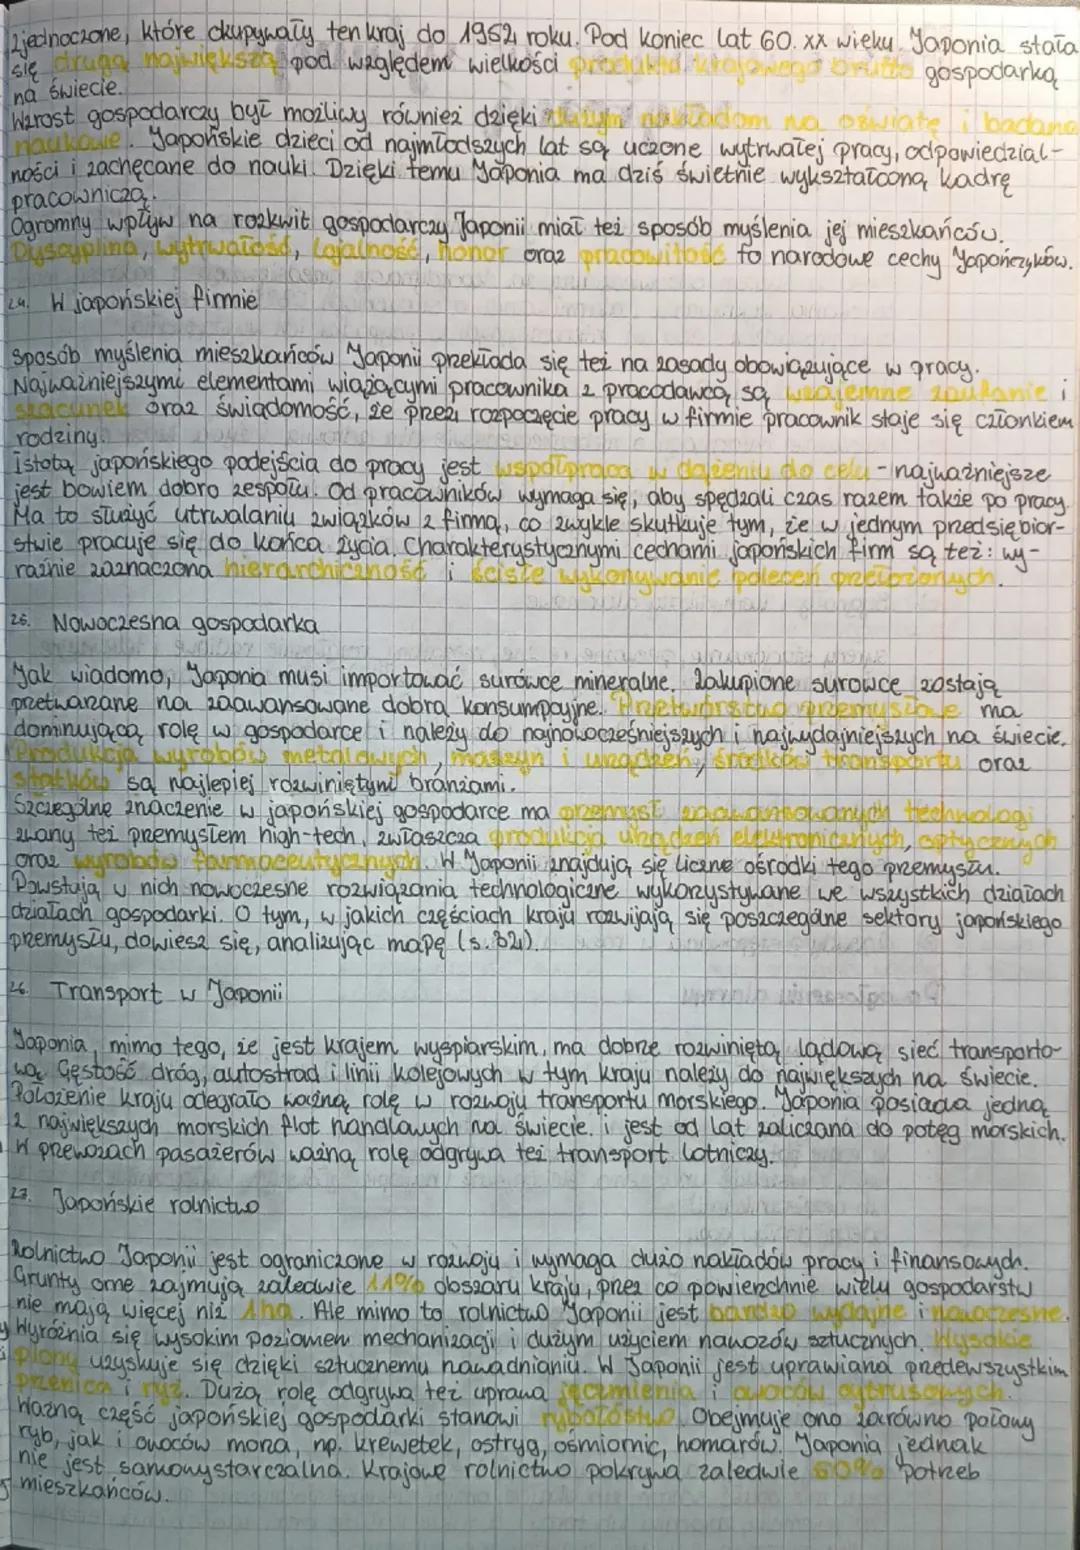 Zjednoczone, które okupywały ten kraj do 1952 roku. Pod koniec lat 60. XX wieku Japonia stała
się drugą największą pod względem wielkości produktu krajowego brutto gospodarką
na świecie.
Wzrost gospodarczy był możliwy również dzięki dużym nakładom na oświatę i badania
naukowe. Japońskie dzieci od najmłodszych lat są uczone wytrwałej pracy, odpowiedzial-
ności i zachęcane do nauki. Dzięki temu Japonia ma dziś świetnie wykształconą kadrę
pracowniczą.
Ogromny wpływ na rozkwit gospodarczy Japonii miał też sposób myślenia jej mieszkańców.
Dyscyplina, wytrwałość, lojalność, honor oraz pracowitość to narodowe cechy Japończyków.
24. W japońskiej firmie
Sposób myślenia mieszkańców Japonii przekłada się też na zasady obowiązujące w pracy.
Najważniejszymi elementami wiążącymi pracownika z pracodawcą są wzajemne zaufanie i
szacunek oraz świadomość, że przez rozpoczęcie pracy w firmie pracownik staje się członkiem
rodziny.
Istotą japońskiego podejścia do pracy jest współpraca w dążeniu do celu - najważniejsze
jest bowiem dobro zespołu. Od pracowników wymaga się, aby spędzali czas razem także po pracy.
Ma to służyć utrwalaniu związków z firmą, co zwykle skutkuje tym, że w jednym przedsiębior-
stwie pracuje się do końca życia. Charakterystycznymi cechami japońskich firm są też: wy-
raźnie zaznaczona hierarchiczność i ściste wykonywanie poleceń przełożonych.
25. Nowoczesna gospodarka
Jak wiadomo, Japonia musi importować surowce mineralne. Zakupione surowce zostają
przetwarzane na zaawansowane dobra konsumpcyjne. Przetwórstwo przemysłowe ma
dominującą rolę w gospodarce i należy do najnowocześniejszych i najwydajniejszych na świecie.
Produkcja wyrobów metalowych, maszyn i urządzeń, środków transportu oraz
statków są najlepiej rozwiniętymi branżami.
Szczególne znaczenie w japońskiej gospodarce ma przemysł zaawansowanych technologi
zwany też przemysłem high-tech, zwłaszcza produkcja urządzeń elektronicznych, optycznych
oraz wyrobów farmaceutycznych. W Japonii znajdują się liczne ośrodki tego przemysłu.
Powstają w nich nowoczesne rozwiązania technologiczne wykorzystywane we wszystkich działach
działach gospodarki. O tym, w jakich częściach kraju rozwijają się poszczególne sektory japońskiego
przemysłu, dowiesz się, analizując mapę (s. 82).
26. Transport w Japonii
Japonia, mimo tego, że jest krajem wyspiarskim, ma dobrze rozwiniętą lądową sieć transporto-
wą. Gęstość dróg, autostrad i linii kolejowych w tym kraju należy do największych na świecie.
Położenie kraju odegrało ważną rolę w rozwoju transportu morskiego. Japonia posiada jedną
z największych morskich flot handlowych na świecie i jest od lat zaliczana do potęg morskich.
W przewozach pasażerów ważną rolę odgrywa też transport lotniczy.
27. Japońskie rolnictwo
Rolnictwo Japonii jest ograniczone w rozwoju i wymaga dużo nakładów pracy i finansowych.
Grunty orne zajmują zaledwie 11% obszaru kraju, przez co powierzchnie wielu gospodarstw
nie mają więcej niż 1ha. Ale mimo to rolnictwo Japonii jest bardzo wydajne i nowoczesne.
Wyróżnia się wysokim poziomem mechanizacji i dużym użyciem nawozów sztucznych. Wysokie
plony uzyskuje się dzięki sztucznemu nawadnianiu. W Japonii jest uprawiana przedewszystkim
pszenica i ryż. Dużą rolę odgrywa też uprawa jęczmienia i owoców cytrusowych.
Ważną część japońskiej gospodarki stanowi rybołóstwo. Obejmuje ono zarówno połowy
ryb, jak i owoców morza, np. krewetek, ostryg, ośmiornic, homarów. Japonia jednak
nie jest samowystarczalna. Krajowe rolnictwo pokrywa zaledwie 60% potrzeb
mieszkańców.